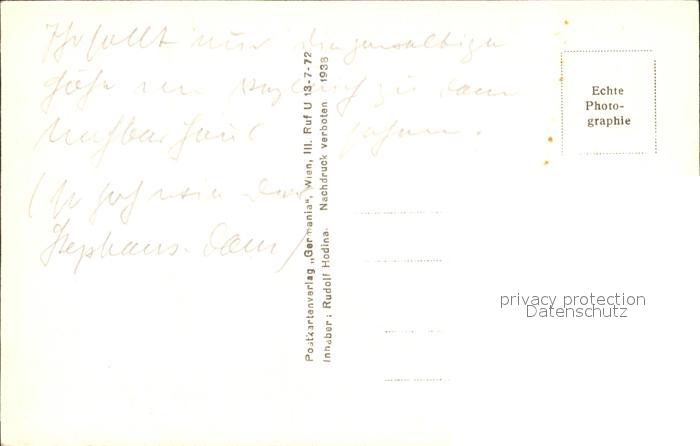 Ihr sollt nur die gewaltige
Höhe im Vergleich zu dem
Nachbarhaus sehen.
(so hoch wie der
Stephans-Dom)
Postkartenverlag „Germania", Wien, III. Ruf U 13-7-72
Inhaber: Rudolf Hodina. Nachdruck verboten. 1938
Echte
Photo-
graphie
privacy protection
Datenschutz